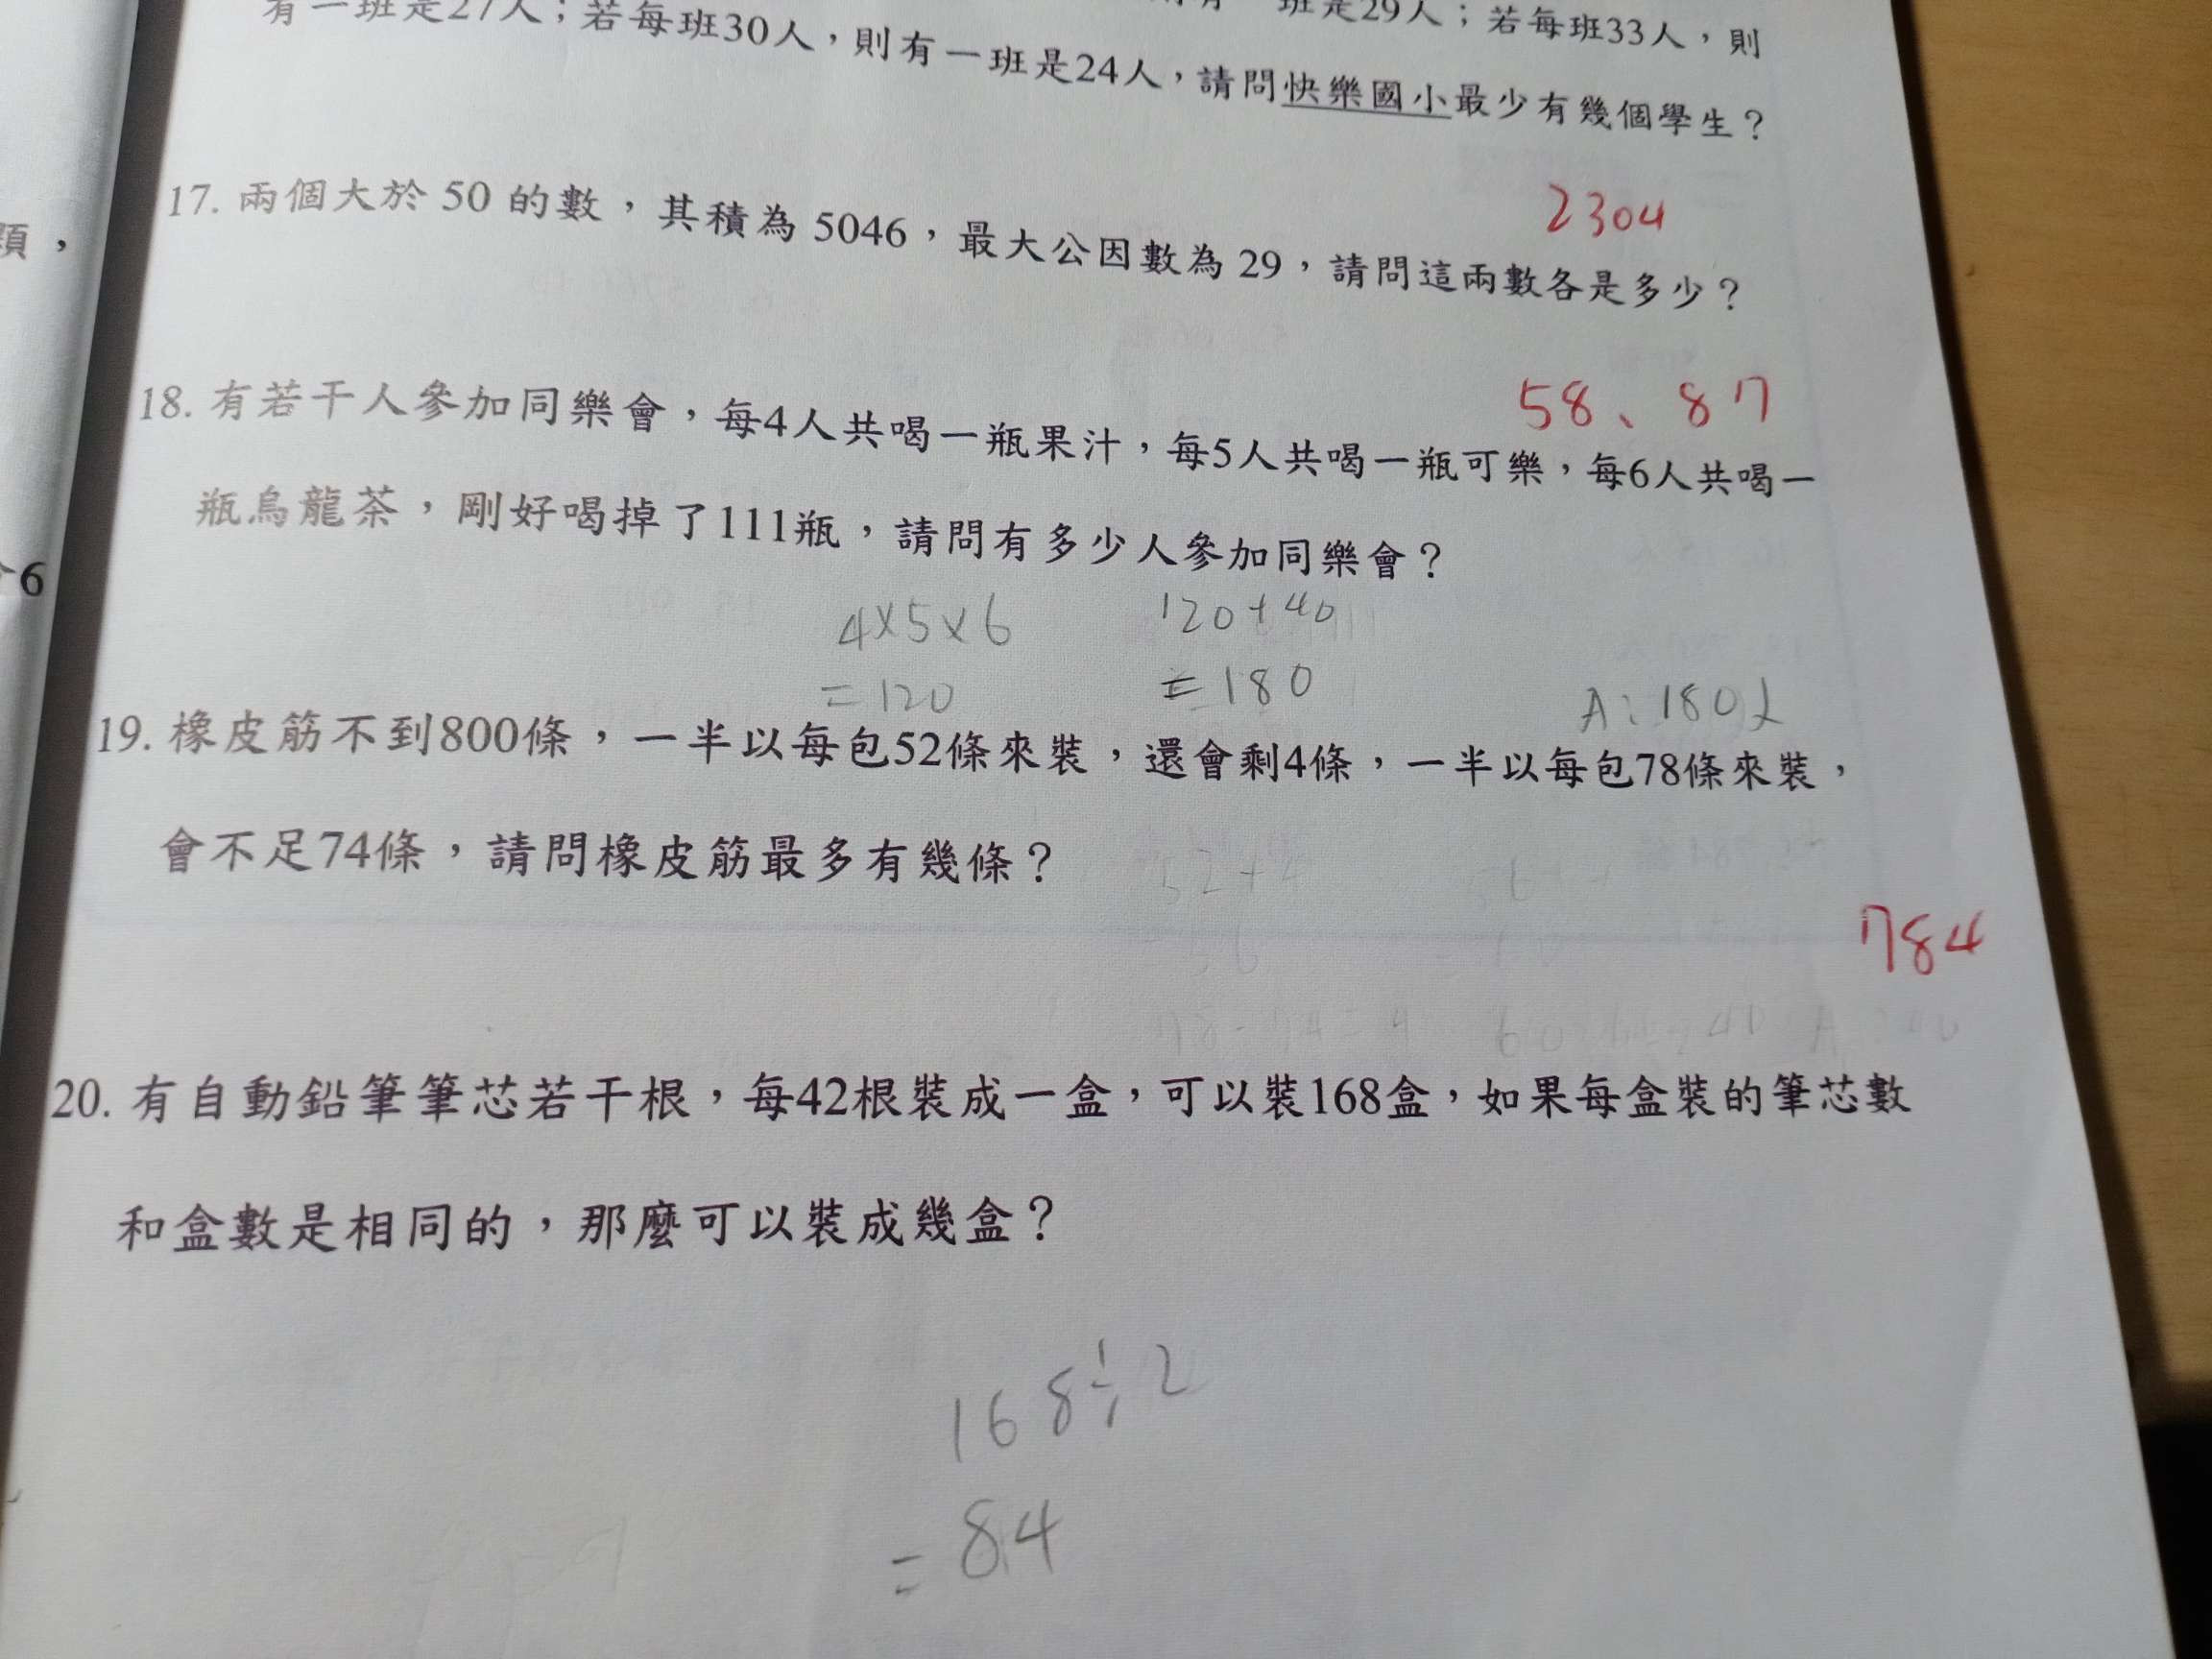 有一班是27人；若每班30人，則有一班是24人，請問快樂國小最少有幾個學生？
班是29人；若每班33人，則
2304
17. 兩個大於 50 的數，其積為 5046，最大公因數為 29，請問這兩數各是多少？
58、87
18. 有若干人參加同樂會，每4人共喝一瓶果汁，每5人共喝一瓶可樂，每6人共喝一
瓶烏龍茶，剛好喝掉了111瓶，請問有多少人參加同樂會？
4×5×6
=120
120+40
=180
A:180人
19. 橡皮筋不到800條，一半以每包52條來裝，還會剩4條，一半以每包78條來裝，
會不足74條，請問橡皮筋最多有幾條？
784
20. 有自動鉛筆筆芯若干根，每42根裝成一盒，可以裝168盒，如果每盒裝的筆芯數
和盒數是相同的，那麼可以裝成幾盒？
168÷2
=84
，
6